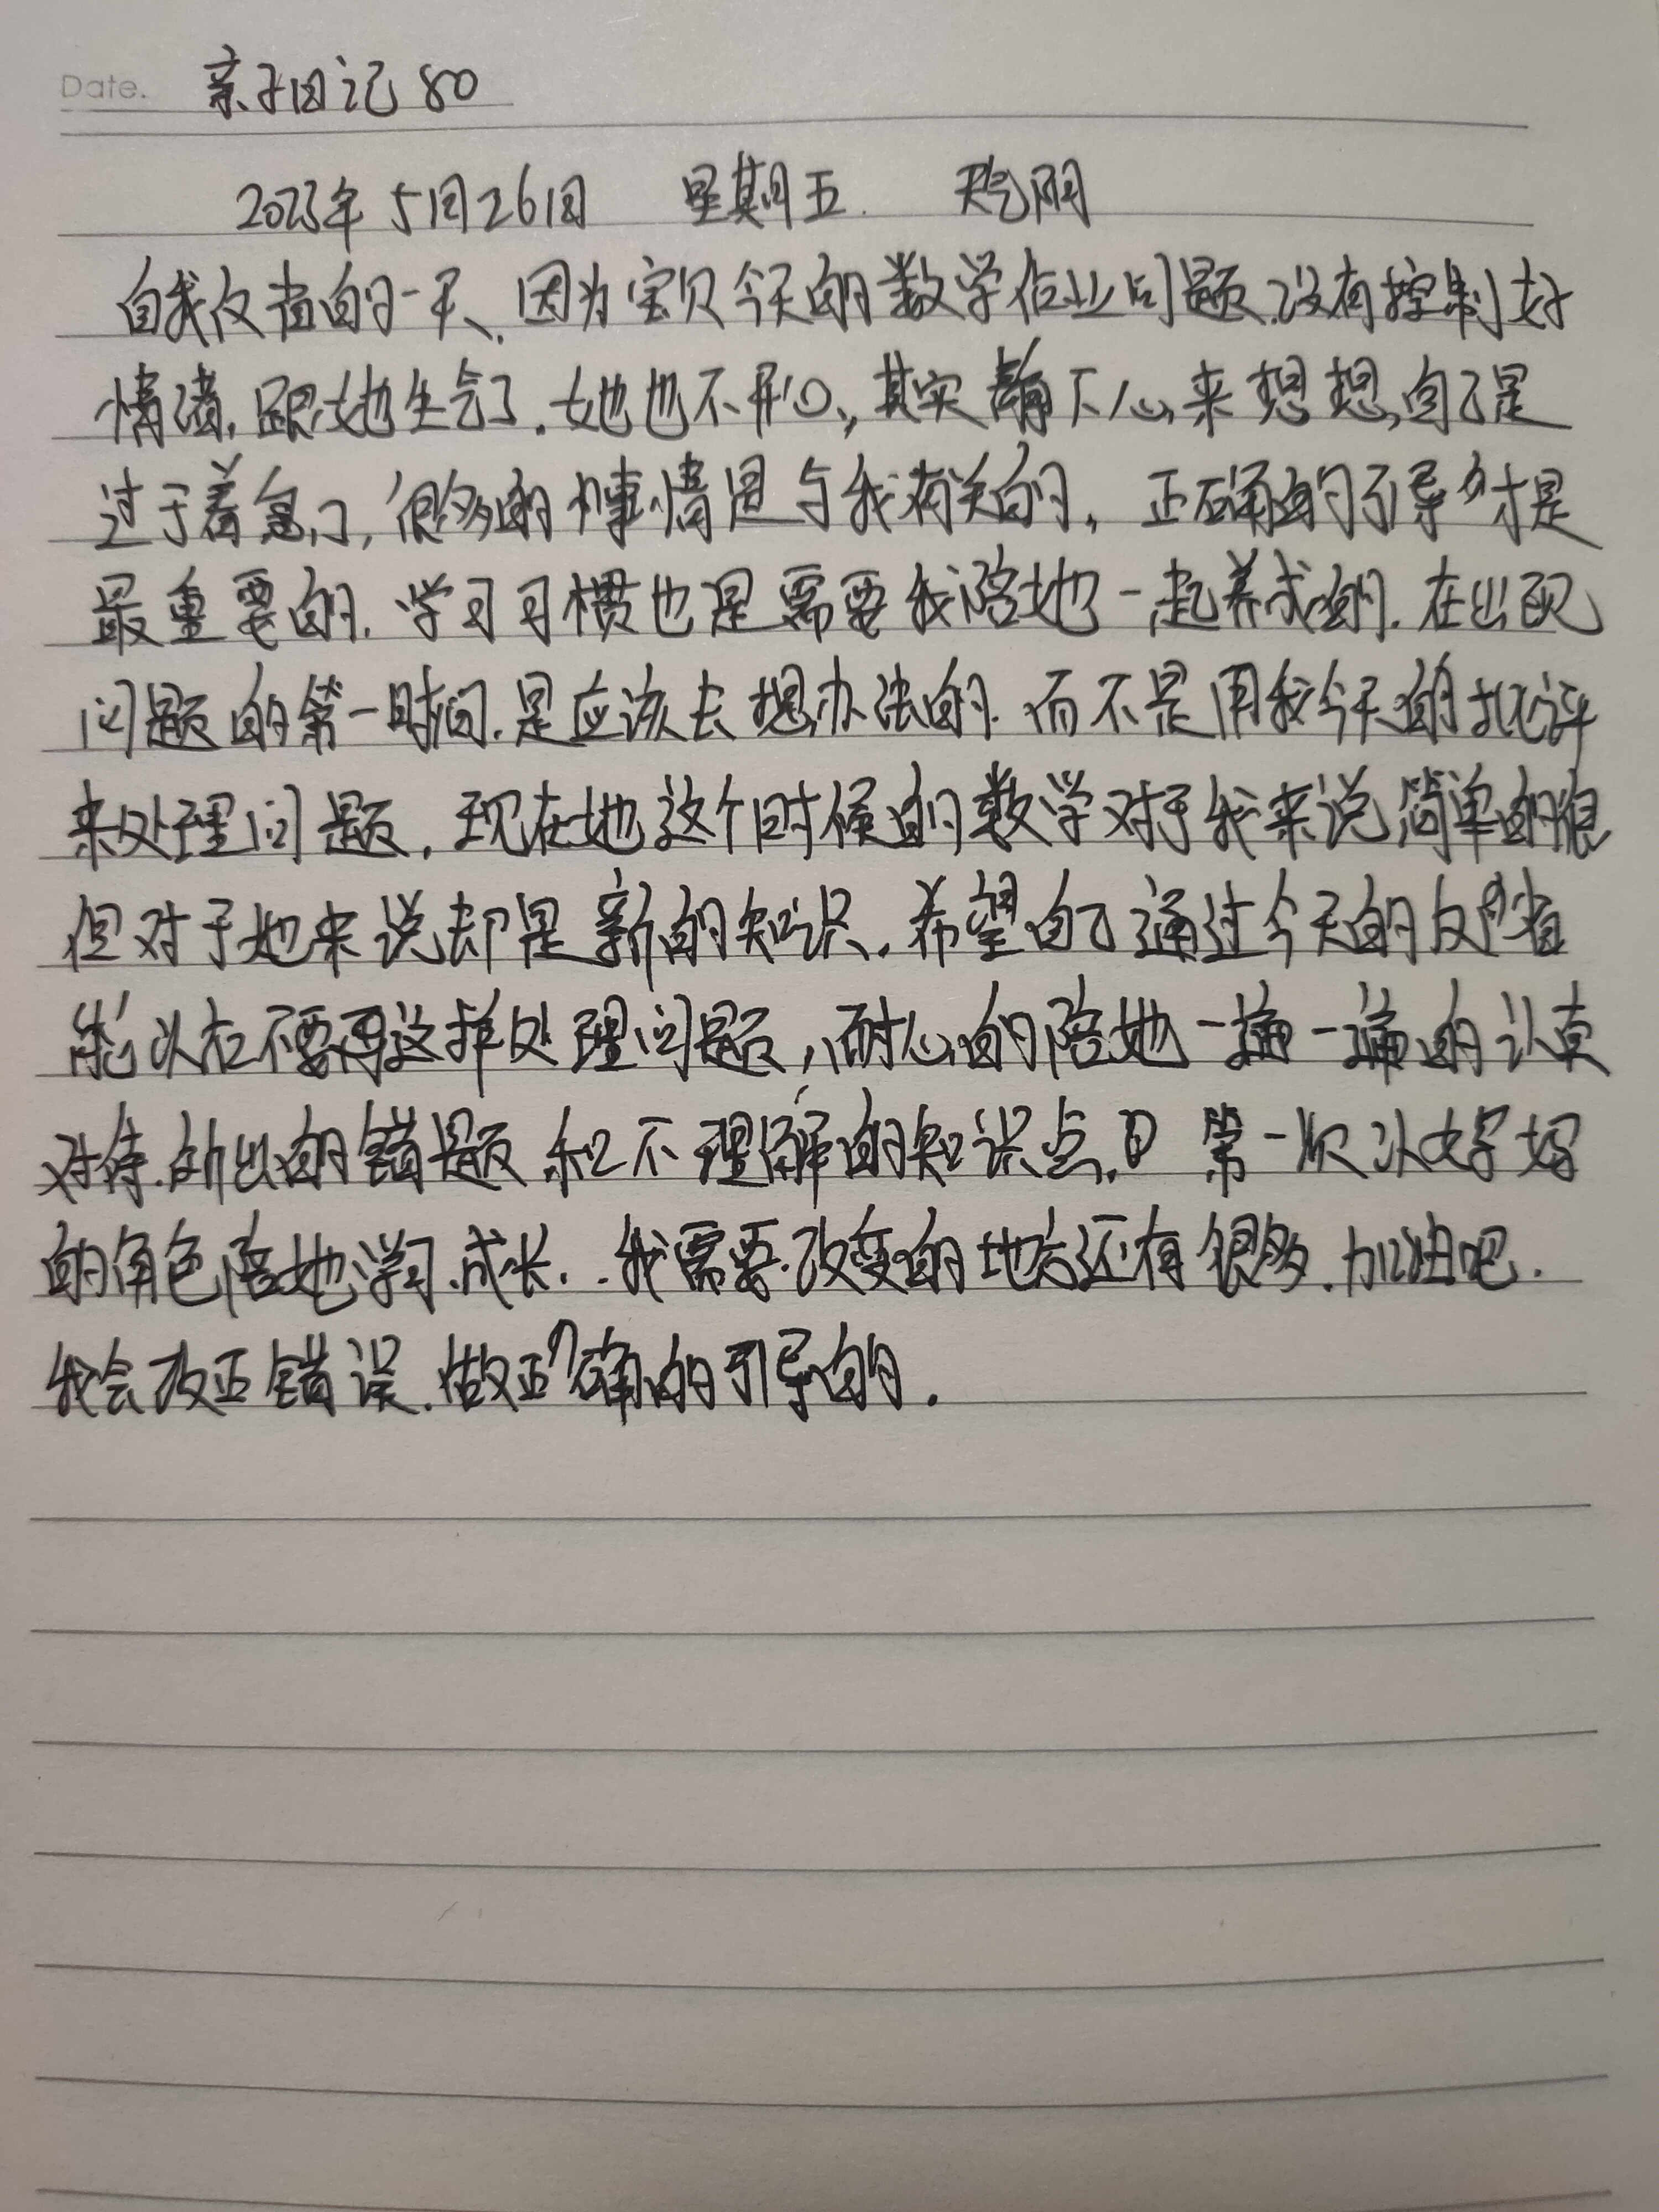 Date. 亲子日记 80
2023年5月26日 星期五. 天气阴
自我反省的一天、因为宝贝今天的数学作业问题.没有控制好
情绪.跟她生气了.她也不开心,其实静下心来想想,自己是
过于着急了,很多的事情是与我有关的.正确的引导才是
最重要的.学习习惯也是需要我陪她一起养成的.在出现
问题的第一时间.是应该去想办法的.而不是用我今天的批评
来处理问题.现在她这个时候的数学对于我来说简单的很
但对于她来说却是新的知识.希望自己通过今天的反省
能以后不要再这样处理问题,耐心的陪她一遍一遍的认真
对待.的出的错题和不理解的知识点.第一次以好妈
的角色陪她学习.成长..我需要改变的地方还有很多.加油吧.
我会改正错误.做正确的引导的.